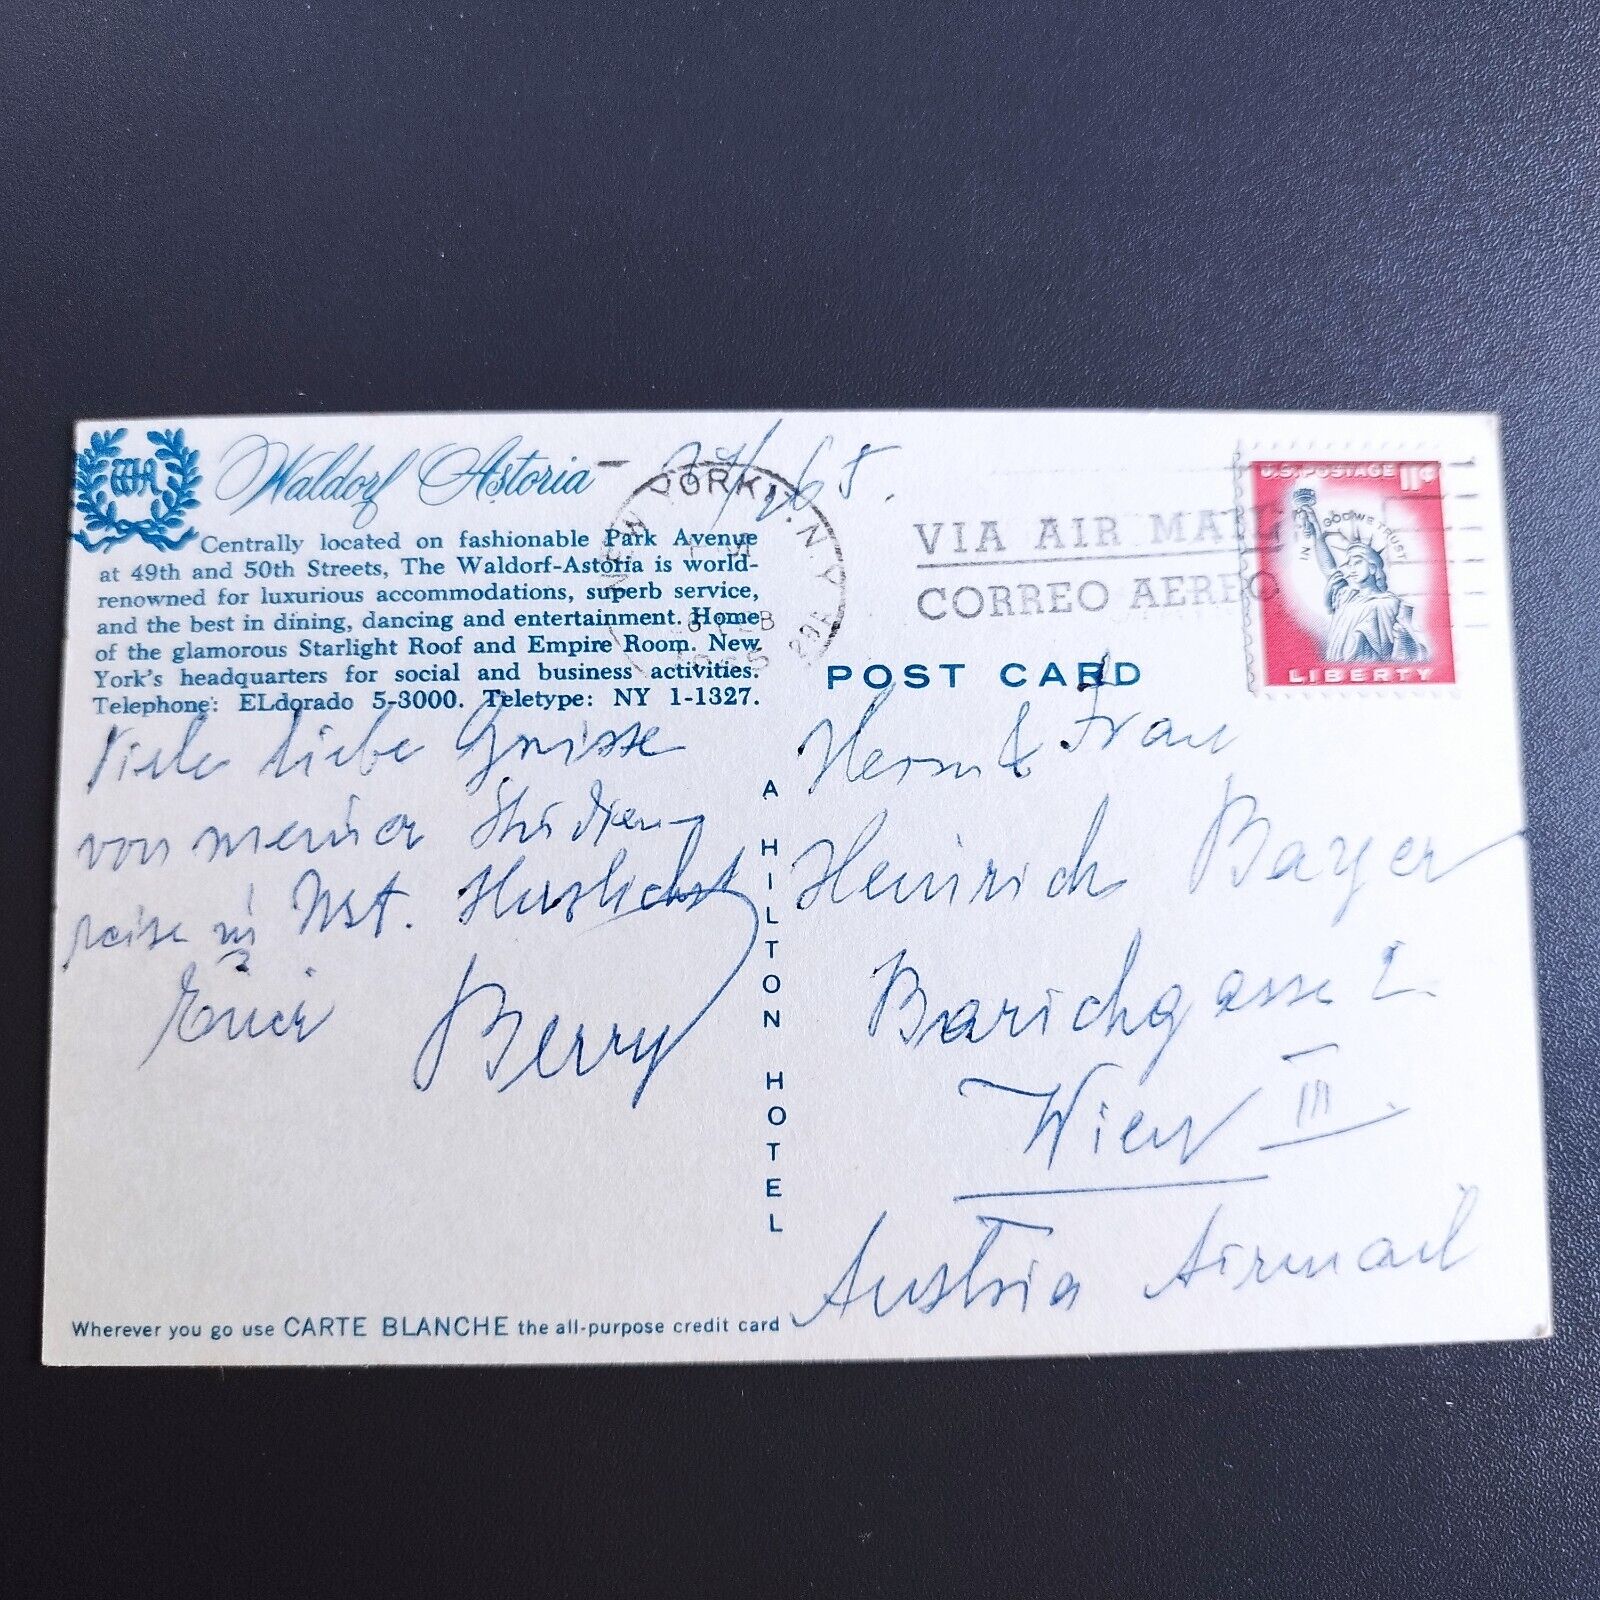 Waldorf Astoria
65.
Centrally located on fashionable Park Avenue
at 49th and 50th Streets, The Waldorf-Astoria is world-
renowned for luxurious accommodations, superb service,
and the best in dining, dancing and entertainment. Home
of the glamorous Starlight Roof and Empire Room. New
York's headquarters for social and business activities.
Telephone: ELdorado 5-3000. Teletype: NY 1-1327.
Viele liebe Grüsse
von meiner Studien-
reise in Herzlichst
Euer Berry
Wherever you go use CARTE BLANCHE the all-purpose credit card
A HILTON HOTEL
NEW YORK, N.Y.
FEB
VIA AIR MAIL
CORREO AEREO
U.S. POSTAGE 11¢
IN GOD WE TRUST
LIBERTY
POST CARD
Herrn & Frau
Heinrich Bayer
Barichgasse 2.
Wien III.
Austria Airmail